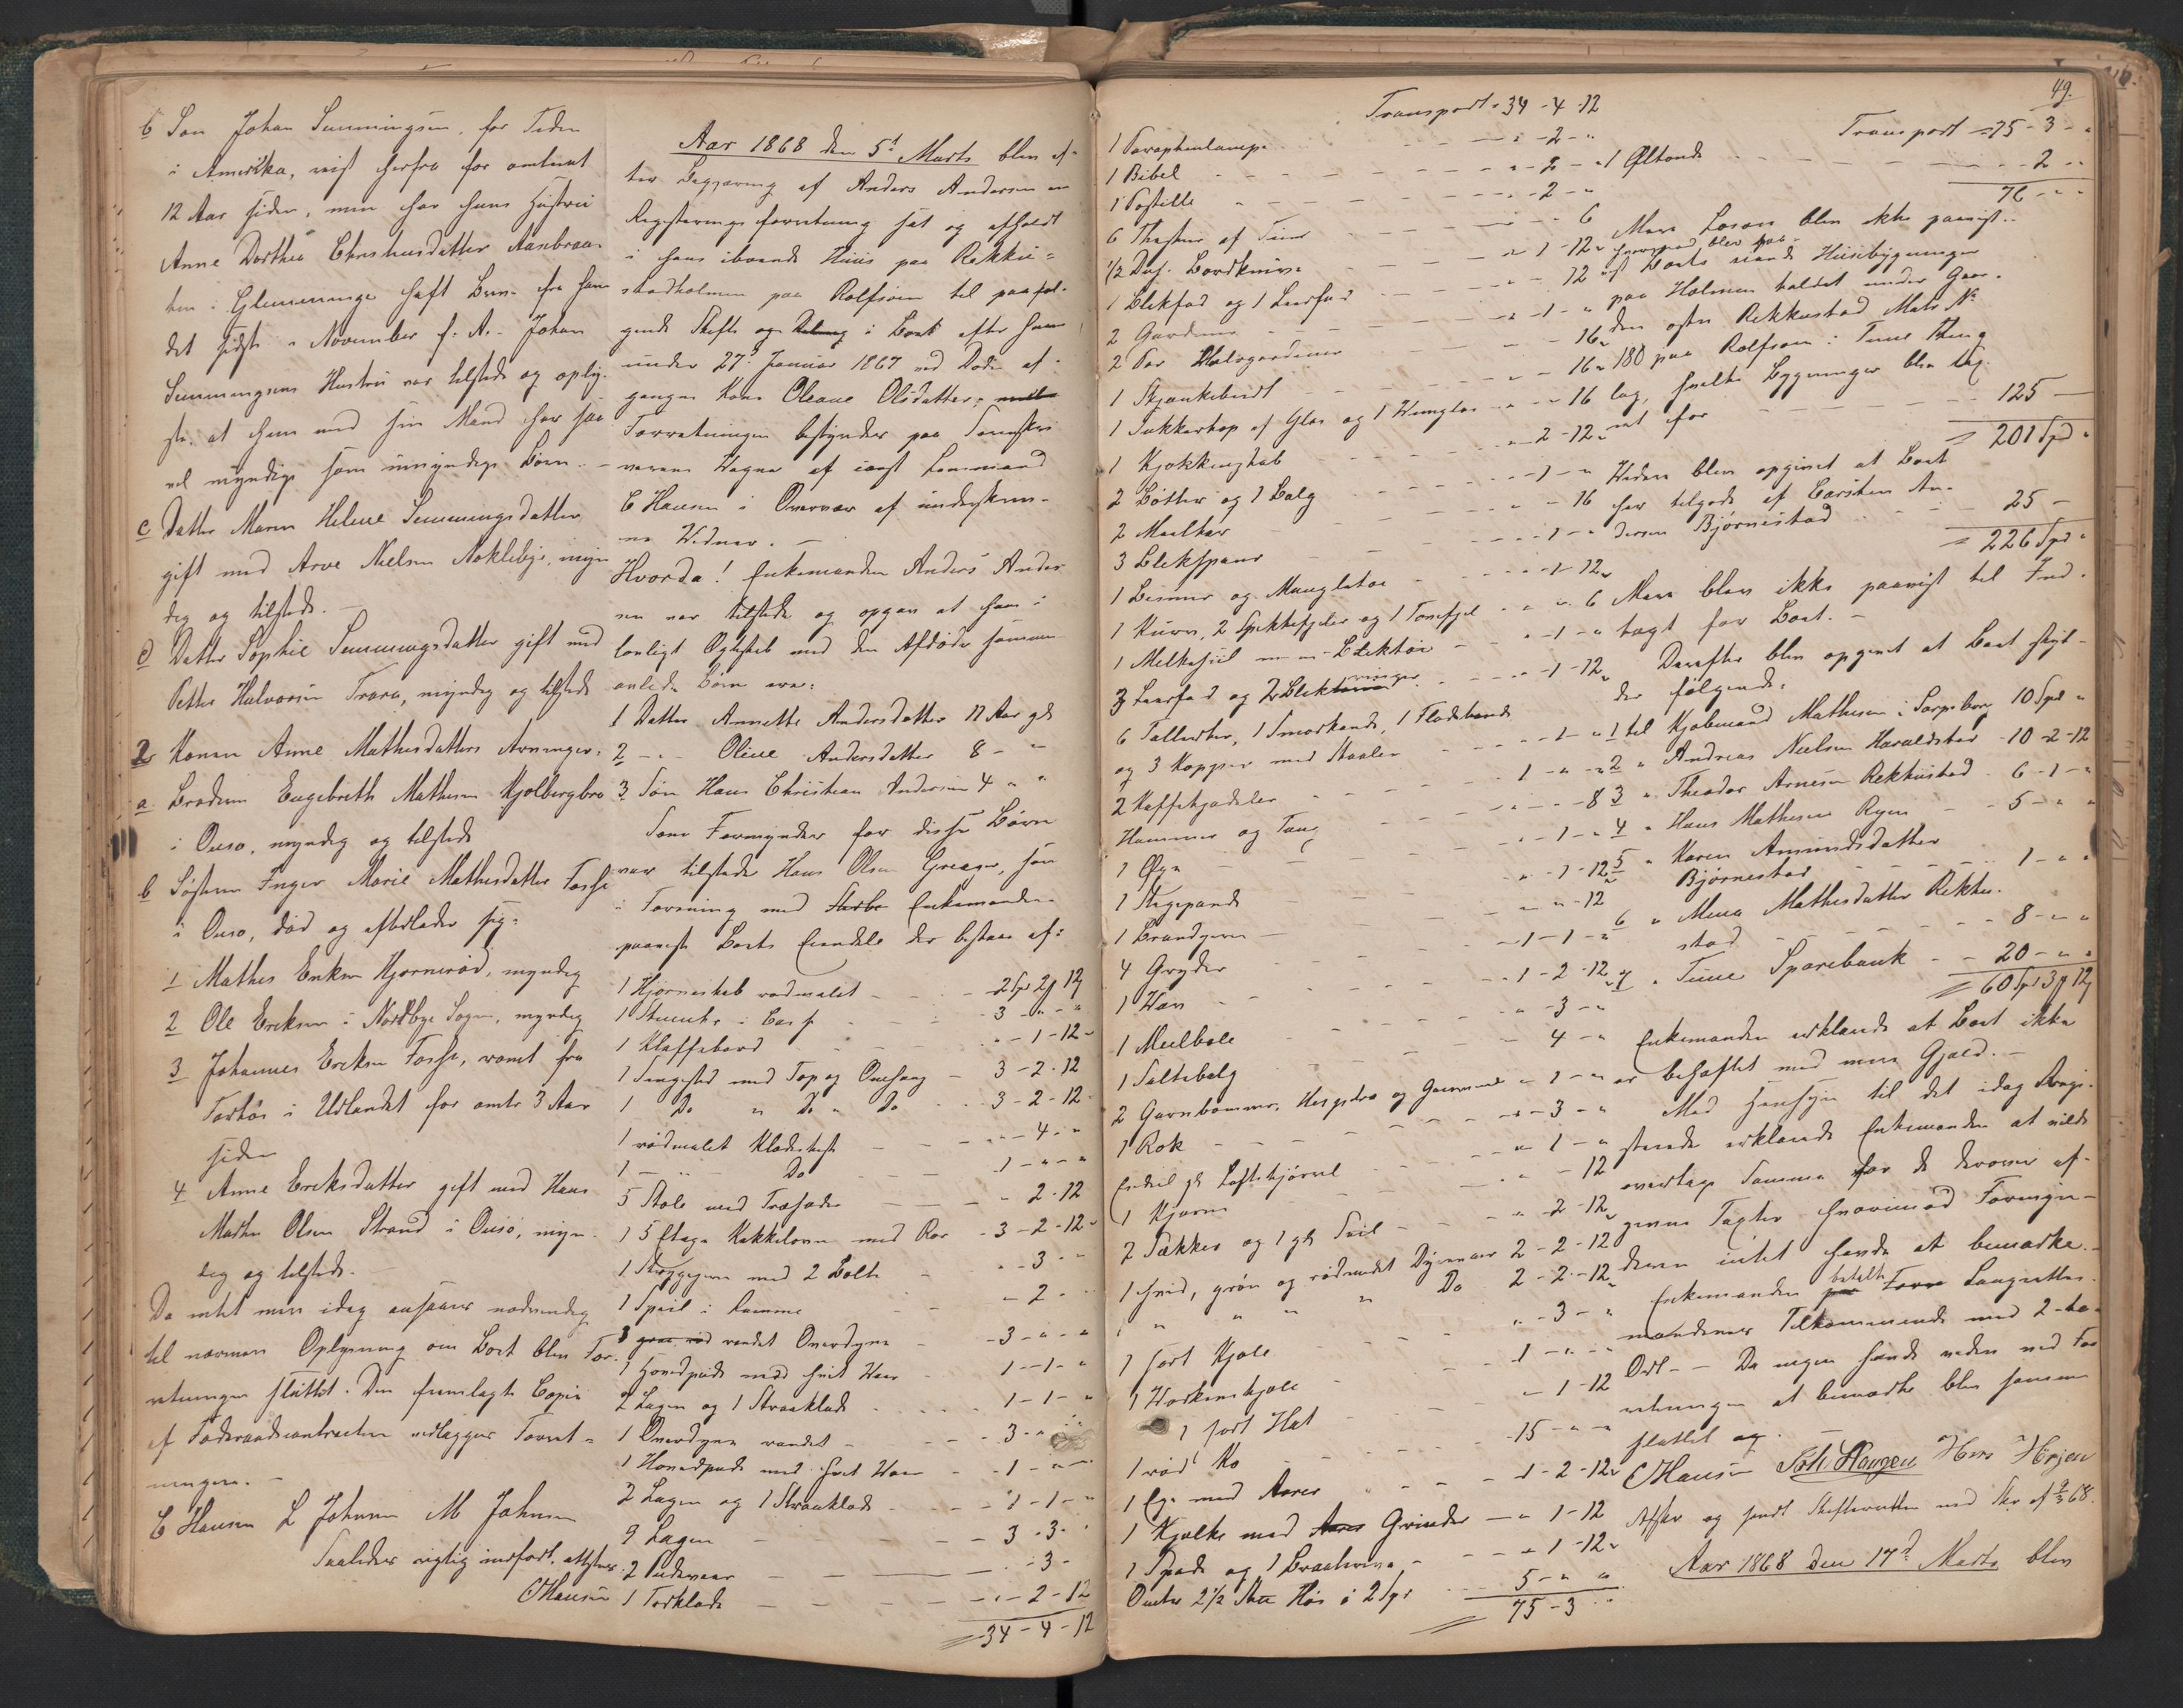 b Søn Johan Semmingsen, for Tiden
i Amerika, reist herfra for omtrent
12 Aar siden, men har hans Hustru
Anne Dorthea Christensdatter Aasebraa-
ten i Glemminge havt Brev fra ham
det sidste i November f. A. Johan
Semmingsens Hustru var tilstede og oply-
ste, at hun med sin Mand har saa
vel myndige som umyndige Børn. –
c Datter Maren Helene Semmingsdatter
gift med Arve Nielsen Nøkleby, myn
dig og tilstede. –
d Datter Sophie Semmingsdatter gift med
Petter Halvorsen Trara, myndig og tilstede
2 Konen Anne Mathisdatters Arvinger:
a. Broderen Engebreth Mathisen Kjølbergbro
i Onsø, myndig og tilstede
b Søsteren Inger Marie Mathisdatter Fosse
i Onsø, død og efterlader sig:
1 Mathis Eriksen Kjærnerød, myndig
2 Ole Eriksen i Nordbye Sogn, myndig
3 Johannes Eriksen Fosse, rømt fra
Tartøi i Udlandet for omtr 3 Aar
siden
4 Anne Eriksdatter gift med Hans
Mathis Olsen Strand i Onsø, myn-
dig og tilstede. –
Da intet mere idag ansaaes nødvendig
til nærmere Oplysning om Boet blev For-
retningen sluttet. Den fremlagte Copie
af Føderaadscontracten vedlægges Forret-
ningen. –
C Hansen L Johnsen M Johnsen
Saaledes rigtig indført, attesteres.
CHansen
Aar 1868 den 5t Marts blev ef-
ter Begjæring af Anders Andersen en
Registreringsforretning sat og afholdt
i hans iboende Huus paa Rekku-
stadholmen paa Rolfsøen til paaføl-
gende Skifte og Deling i Boet efter hans
under 27d Januar 1867 ved Døden af-
gangne Kone Oleane Olsdatter,
Forretningen bestyrdes paa Sorenskri
verens Vegne af const Lensmand
C Hansen i Overvær af underskrev-
ne Vidner. –
Hvorda! Enkemanden Anders Ander
sen var tilstede og opgav at hans i
lovligt Ægteskab med den Afdøde sammen
avlede Børn ere:
1 Datter Annette Andersdatter 11 Aar gl
2 – „ Oline Andersdatter 8 – „
3 Søn Hans Christian Andersen 4 „ „
Som Formynder for disse Børn
var tilstede Hans Olsen Greager, som
i Forening med Enkemanden
paaviste Boets Eiendele der bestaar af:
1 Hjørneskab rødmalet – 2Sp 2 12
1 Stueuhr i Casse – 3 – „ – „
1 Klaffebord – „ – 1 – 12
1 Sengested med Top og Omhæng – 3 – 2 – 12
1 Do „ Do „ Do – 3 – 2 – 12
1 rødmalet Klædeskiste – „ – 4 – „
1 – „ – Do – 1 – „ – „
5 Stole med Træsæder – „ 2 – 12
1 5 Etages Kakkelovn med Rør – 3 – 2 – 12
1 Strygejern med 2 Bolte – „ – 3 – „
1 Speil i Ramme – „ – 2 – „
vendet Overdyne – 3 – „ – „
1 Hovedpude med hvit Vaar – 1 – 1 – „
2 Lagen og 1 Straaklæde – 1 – 1 – „
1 Overdyne vendet – 3 – „
1 Hovedpude med hvit Vaar – 1 – „ –
2 Lagen og 1 Straaklæde – 1 – 1 – „
9 Lagen – 3 – 3 –
2 Pudevaar – „ – 3 –
1 Torklæde – „ – 2 – 12
34 – 4 – 12
49.
Transport 34 – 4 – 12
1 Paraphinlampe – „ – 2 – „
1 Bibel – „ – 2 – „
1 Postille – „ – 2 – „
6 Theskeer af Tin – „ – „ 6
1/2 Dus. Bordknive – „ 1 – 12
1 Blikfad og 1 Leerfad – „ – „ 12
2 Gardiner – „ – 1 – „
2 Par Halvgardiner – „ – „ 16
1 Skjænkebredt – „ – „ 16
1 Sukkerkop af Glas og 1 Vinglas – „ – „ 16
1 Kjøkkenskab – „ – 2 – 12
2 Bøtter og 1 Balg – „ – 1 – „
2 Meelkar – „ – „ 16
3 Blikspand – „ – 1 – „
1 Bismer og Mangletræ – „ – 1 – 12
1 Kurv, 2 Spekkefjeler og 1 Tvarefjel – „ – „ 6
1 Melkesiil – Bliktøi – „ – 1 – „
3 Leerfad og 2 Blikringer – „ – 1 – 12
6 Tallerker, 1 Smørkande, 1 Flødekande
og 3 Kopper med Skaaler – „ – 1 – „
2 Kaffekjedeler – 1 – „ – „
Hammer og Tang – „ – „ – 8
1 Øxe – „ – 1 – „
1 Stegepande – „ – 1 – 12
1 Brandjern – „ – „ – 12
4 Gryder – 1 – 1 – „
1 Væv – 1 – 2 – 12
1 Meelbøle – „ – 3 – „
1 Saltebalg – „ 4 – „
2 Garnbommer, Hespetræ og Garnvinde „ 1 – „
1 Rok – „ – 3 – „
Endeel gl Loftskjørrel – „ – 1 – „
1 Kjærne – „ – „ – 12
2 Sækker og 1 gl Seil – „ – 2 – 12
1 hvid, grøn og rødvendet Dynevaar 2 – 2 – 12
1 „ „ „ Do 2 – 2 – 12
1 sort Kjole – „ – 3 – „
1 Værkenskjole – 1 – „ – „
1 sort Hat – „ – 1 – 12
1 rød Ko – 15 – „ – „
1 Ege med Aarer – 1 – 2 – 12
1 Kjælke med Grinder – „ 1 – 12
1 Spade og 1 Braahvine – „ 1 – 12
Omtr 2 1/2 Sk Høi á 2 Spd 5 – „ „
75 – 3 „
Transport 75 – 3 – „
1 Øltønde – „ – 2 – „
76 – „ „
Mere Løsøre blev ikke paavist.
hvorpaa blev paa-
vist Boets eiende Huusbygninger
paa Holmen kaldet under Gaar-
den østre Rekkustad Matr. No
180 paa Rolfsøen i Tune Thing
lag, hvilke Bygninger blev tax-
eret for – 125 –
201 Spd „
Videre blev opgivet at Boet
har tilgode af Carsten An-
dersen Bjørnestad – 25 –
226 Spd „
Mere blev ikke paavist til Ind-
tægt for Boet. –
Derefter blev opgivet at Boet skyl-
der følgende:
1 til Kjøbmand Mathisen i Sarpsborg 10 Spd „
2 „ Andreas Nielsen Haraldstad – 10 – 2 – 12
3 „ Theodor Arnesen Rekkustad – 6 – 1 – „
4 „ Hans Mathisen Ryen – 5 – „ „
5 „ Karen Amundsdatter
Bjørnestad – 1 – „ „
6 „ Mina Mathisdatter Rekku-
stad – 8 – „ „
7 „ Tune Sparebank – 20 – „ „
60 Spd 3 12
Enkemanden erklærede at Boet ikke
er behæftet med mere Gjæld. –
Med Hensyn til det idag Regi-
strerede erklærede Enkemanden at ville
overtage Samme for de derover af-
givne Taxter hvorimod Formyn-
deren intet havde at bemærke. –
Enkemanden betalte Laugrettes-
mændenes Tilkommende med 2 –
Ort – – Da ingen havde videre ved For
retningen at bemærke blev samme
sluttet og. –
CHansen Joh: Haugen Hans Hørjen
Afskr og sendt Skifteretten med Skr af 9/3 68.
Aar 1868 den 17d Marts blev